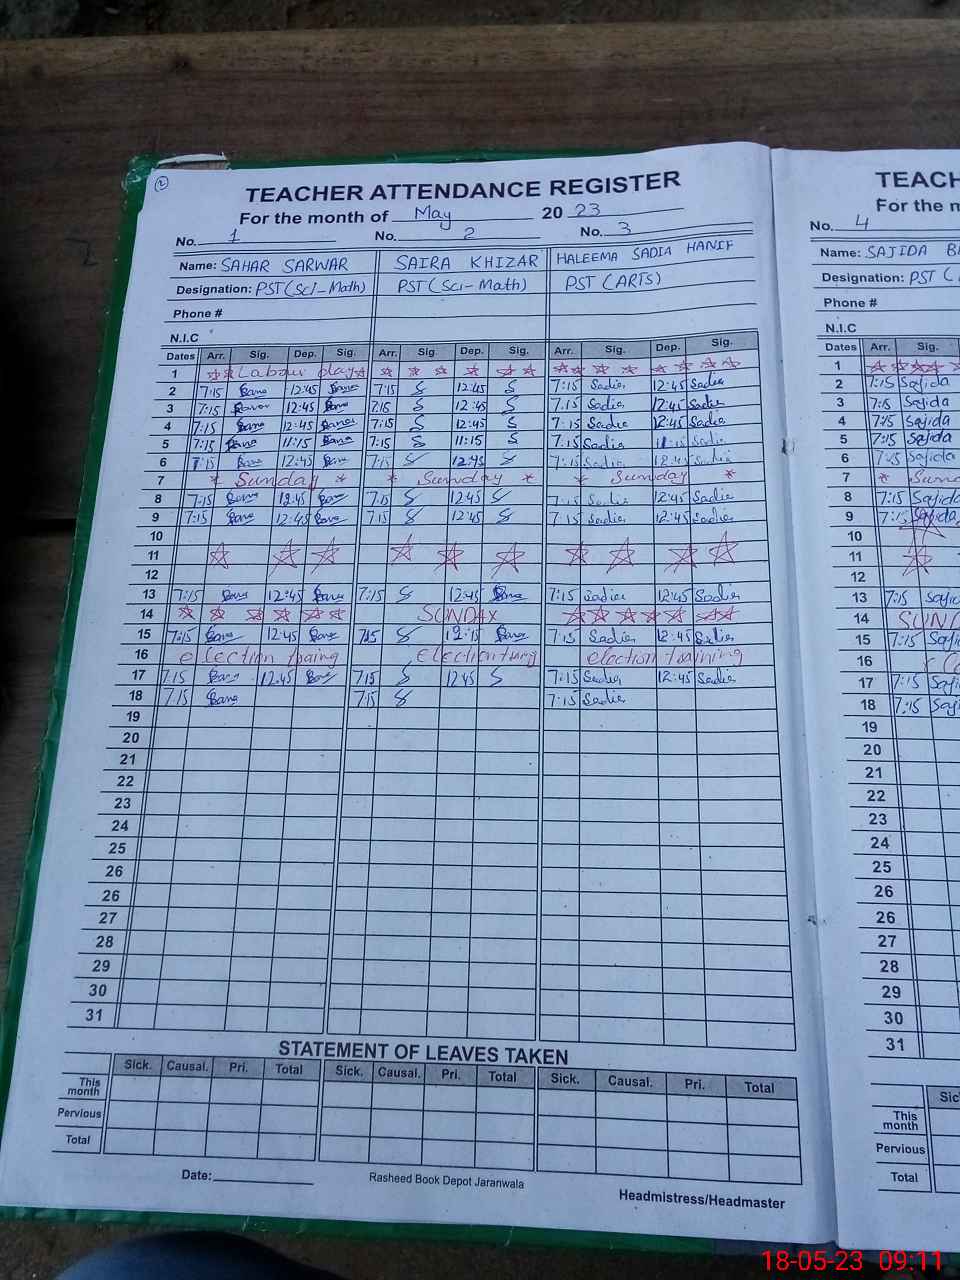 2
TEACHER ATTENDANCE REGISTER
For the month of May 20 23
No. 1 No. 2 No. 3
Name: SAHAR SARWAR SAIRA KHIZAR HALEEMA SADIA HANIF
Designation: PST (Sci-Math) PST (Sci-Math) PST (ARTS)
Phone #
N.I.C
Dates Arr. Sig. Dep. Sig. Arr. Sig. Dep. Sig. Arr. Sig. Dep. Sig.
1 Labour day
2 7:15 12:45 7:15 S 12:45 S 7:15 Sadia 12:45 Sadia
3 7:15 12:45 7:15 S 12:45 S 7:15 Sadia 12:45 Sadia
4 7:15 12:45 7:15 S 12:45 S 7:15 Sadia 12:45 Sadia
5 7:15 11:15 7:15 S 11:15 S 7:15 Sadia 11:15 Sadia
6 7:15 12:45 7:15 S 12:45 S 7:15 Sadia 12:45 Sadia
7 Sunday Sunday Sunday
8 7:15 12:45 7:15 S 12:45 S 7:15 Sadia 12:45 Sadia
9 7:15 12:45 7:15 S 12:45 S 7:15 Sadia 12:45 Sadia
10
11
12
13 7:15 12:45 7:15 S 12:45 7:15 Sadia 12:45 Sadia
14 SUNDAY
15 7:15 12:45 7:15 S 12:15 7:15 Sadia 12:45 Sadia
16 election traing election traing election training
17 7:15 12:45 7:15 S 12:45 S 7:15 Sadia 12:45 Sadia
18 7:15 7:15 S 7:15 Sadia
19
20
21
22
23
24
25
26
26
27
28
29
30
31
STATEMENT OF LEAVES TAKEN
Sick. Causal. Pri. Total Sick. Causal. Pri. Total Sick. Causal. Pri. Total
This month
Pervious
Total
Date:
Rasheed Book Depot Jaranwala
Headmistress/Headmaster
TEACH
For the m
No. 4
Name: SAJIDA B
Designation: PST (
Phone #
N.I.C
Dates Arr. Sig.
1
2 7:15 Sajida
3 7:15 Sajida
4 7:15 Sajida
5 7:15 Sajida
6 7:15 Sajida
7 Sund
8 7:15 Sajida
9 7:15 Sajida
10
11
12
13 7:15 Sajid
14 SUND
15 7:15 Saji
16
17 7:15 Saji
18 7:15 Saji
19
20
21
22
23
24
25
26
26
27
28
29
30
31
Sic
This month
Pervious
Total
18-05-23 09:11